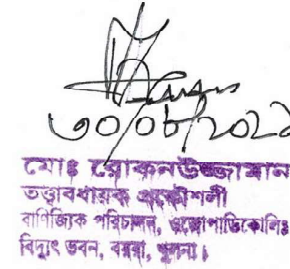 ৩০/০৮/২০২১
মোঃ রোকনউজ্জামান
তত্ত্বাবধায়ক প্রকৌশলী
বাণিজ্যিক পরিচালন, ওজোপাডিকোলিঃ
বিদ্যুৎ ভবন, বয়রা, খুলনা।